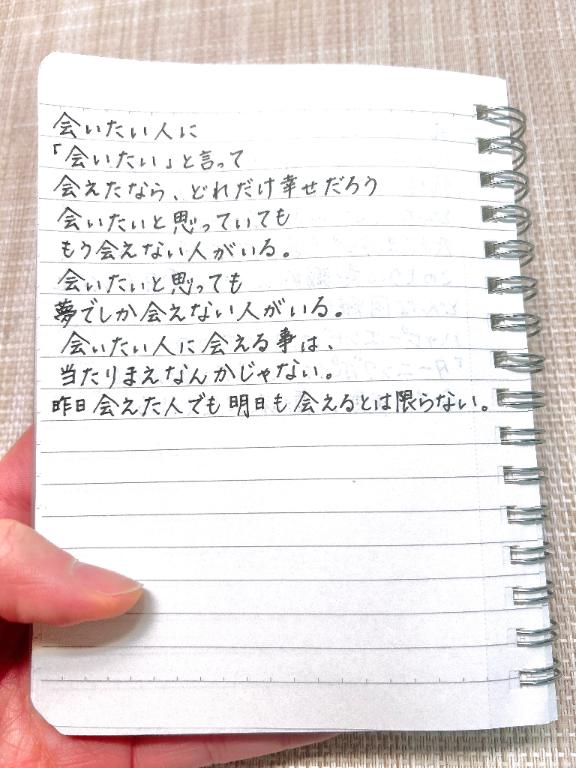 会いたい人に
「会いたい」と言って
会えたなら、どれだけ幸せだろう
会いたいと思っていても
もう会えない人がいる。
会いたいと思っても
夢でしか会えない人がいる。
会いたい人に会える事は、
当たりまえなんかじゃない。
昨日会えた人でも明日も会えるとは限らない。